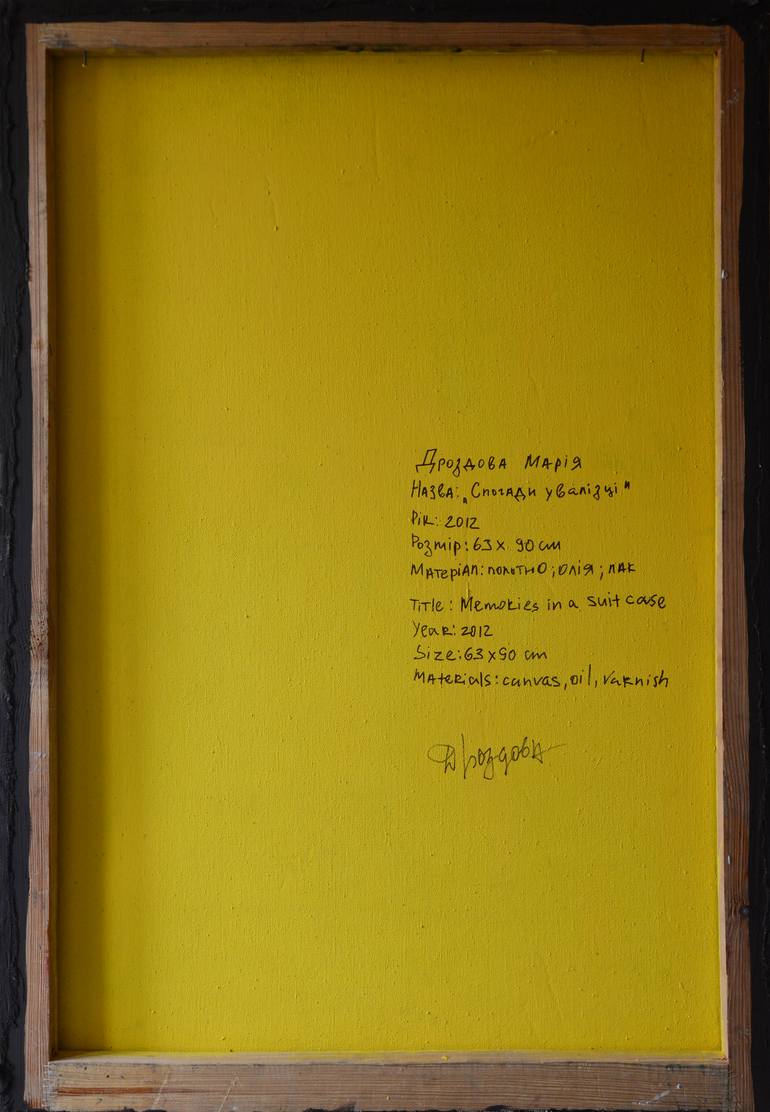 Дроздова Марія
Назва: „Спогади у валізці"
Рік: 2012
Розмір: 63 x 90 cm
Матеріал: полотно; олія; лак
Title: Memories in a suit case
Year: 2012
Size: 63 x 90 cm
Materials: canvas, oil, varnish
Дроздова